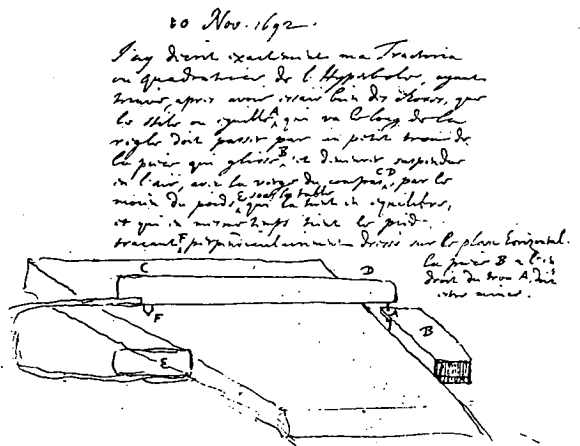 10 Nov. 1692.
J'ay decrit exactement ma Tractoria
ou quadratrice de l'Hyperbole, ayant
trouvè, apres avoir essaiè bien des choses, que
le stile ou eguille A, qui va le long de la
regle doit passer par un petit trou de
la piece qui glisse B et demeurer suspendue
en l'air, avec la verge du compas CD, par le
moien du poids E sous la table qui la tient en equilibre,
et qui en mesme temps tient le pied
tracant F perpendiculairement dressè sur le plan horizontal.
la piece B a l'en
droit du trou A, doit
estre mince.
C D
F A B
E